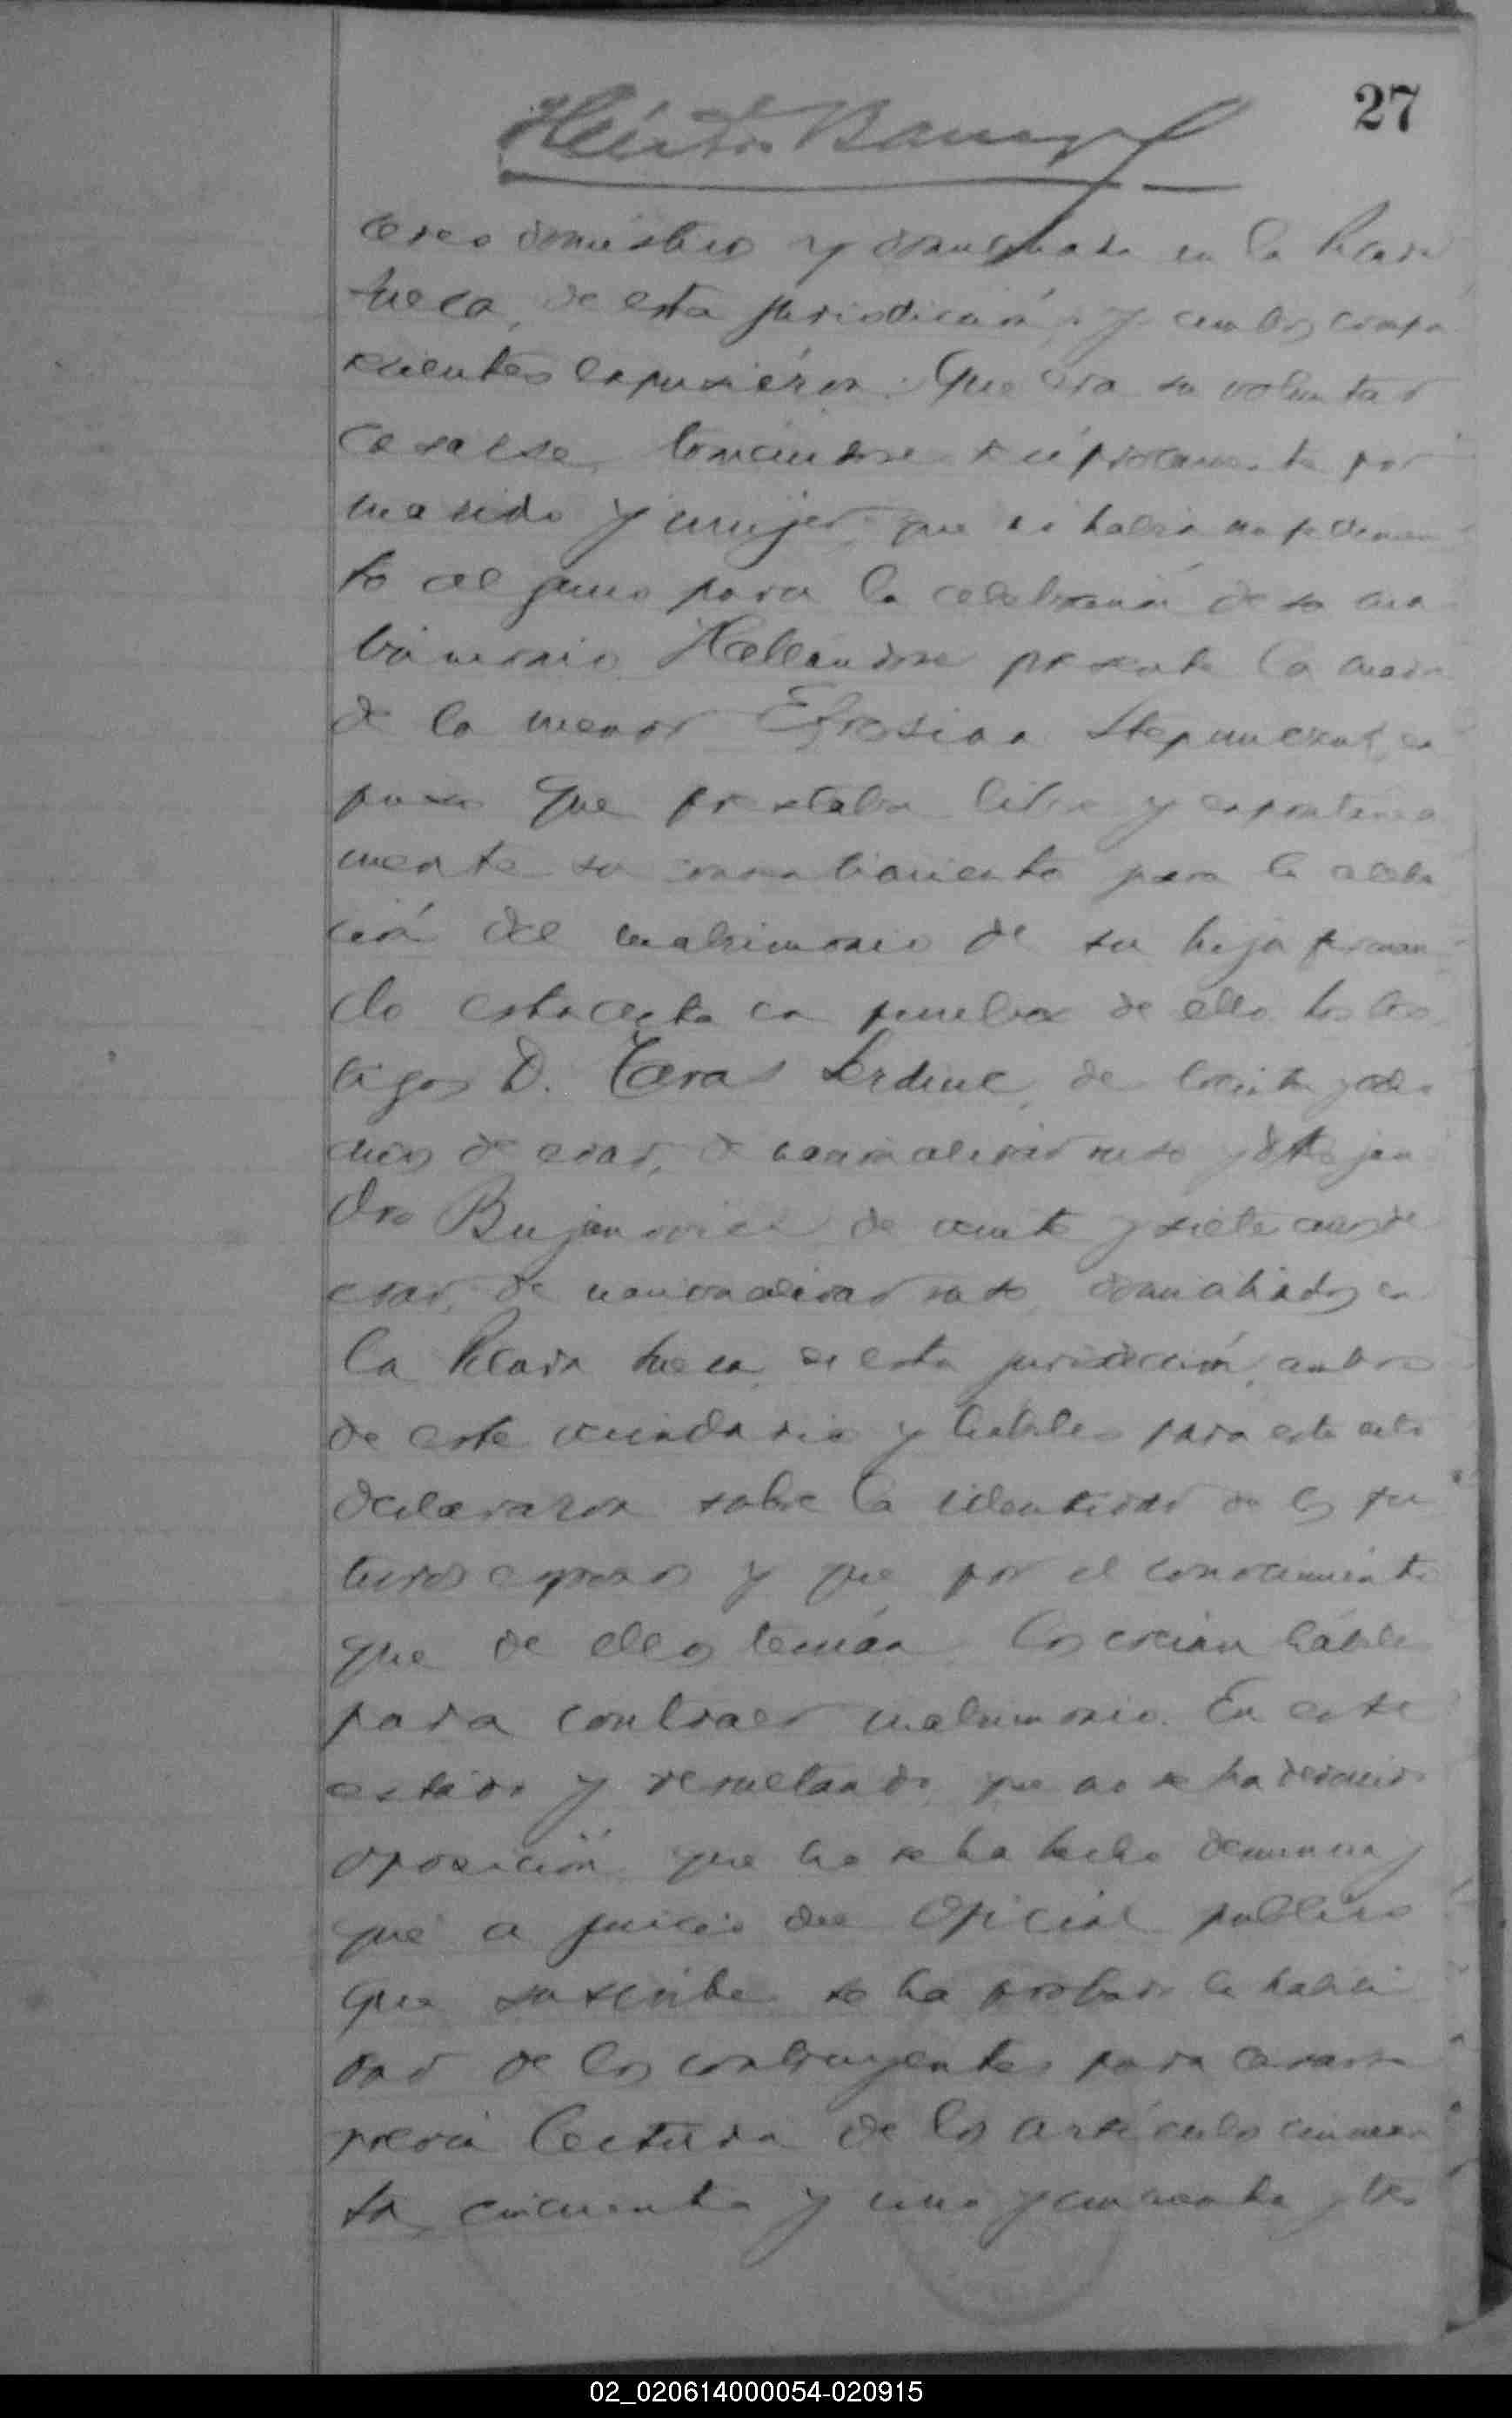 27
Héctor
ceres domésticos y domiciliada en la Picada
sueca, de esta jurisdicción, y ambos compa
recientes expusieron: Que era su voluntad
casarse, tomándose recíprocamente por
marido y mujer, que no había impedimen
to alguno para la celebración de su ma
trimonio. Hallándose presente la madre
de la menor Efrosina ex
puso que prestaba libre y espontánea
mente su consentimiento para la celebra
ción del matrimonio de su hija firman
do esta acta en prueba de ello. Los tes
tigos D. Taras Serdiuc, de treinta y
años de edad, de nacionalidad ruso y D. Alejan
dro de veinte y siete años de
edad, de nacionalidad ruso, domiciliados en
la Picada sueca, de esta jurisdicción, ambos
de este vecindario y hábiles para este acto
declararon sobre la identidad de los fu
turos esposos y que por el conocimiento
que de ellos tenían, los creían hábiles
para contraer matrimonio. En este
estado y resultando que no se ha deducido
oposición, que no se ha hecho denuncia y
que a juicio del Oficial público
que suscribe se ha probado la habili
dad de los contrayentes para casarse
previa lectura de los artículos cincuen
ta, cincuenta y uno y cincuenta y tres
02_020614000054-020915